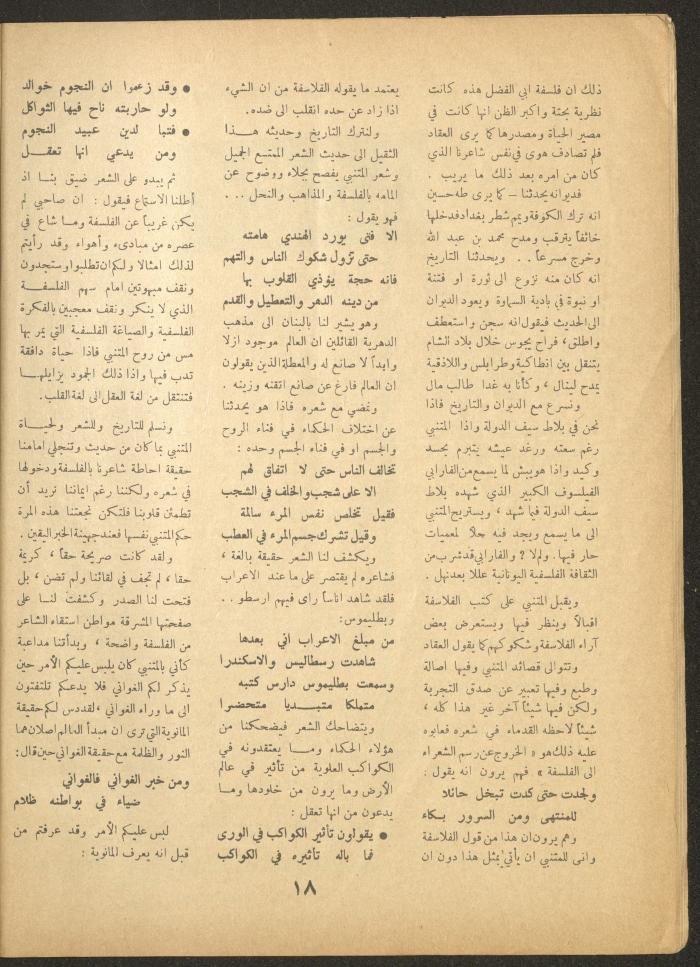 ذلك ان فلسفة ابي الفضل هذه كانت
نظرية بحتة واكبر الظن انها كانت في
مصير الحياة ومصدرها كما يرى العقاد
فلم تصادف هوى في نفس شاعرنا الذي
كان من امره بعد ذلك ما يريب .
فديوانه يحدثنا – كما يرى طه حسين
انه ترك الكوفة ويمم شطر بغداد فدخلها
خائفاً يترقب ومدح محمد بن عبد الله
وخرج مسرعاً . . ويحدثنا التاريخ
انه كان منه نزوع الى ثورة او فتنة
او نبوة في بادية السماوة ويعود الديوان
الى الحديث فيقول انه سجن واستعطف
واطلق ، فراح يجوس خلال بلاد الشام
يتنقل بين انطاكية وطرابلس واللاذقية
يمدح لينال ، وكأنا به غدا طالب مال
ونسرع مع الديوان والتاريخ فاذا
نحن في بلاط سيف الدولة واذا المتنبي
رغم سعته ورغد عيشه يتبرم بحسد
وكيد واذا هو يبش لما يسمع من الفارابي
الفيلسوف الكبير الذي شهده بلاط
سيف الدولة فيما شهد ، ويستريح المتنبي
الى ما يسمع ويجد فيه حلاً لمعميات
حار فيها . ولم لا ? والفارابي قد شرب من
الثقافة الفلسفية اليونانية عللا بعد نهل .
ويقبل المتنبي على كتب الفلاسفة
اقبالاً وينظر فيها ويستعرض بعض
آراء الفلاسفة وشكوكهم كما يقول العقاد
وتتوالى قصائد المتنبي وفيها اصالة
وطبع وفيها تعبير عن صدق التجربة
ولكن فيها شيئاً آخر غير هذا كله ،
شيئاً لاحظه القدماء في شعره فعابوه
عليه ذلك هو « الخروج عن رسم الشعراء
الى الفلسفة » فهم يرون انه يقول :
ولجدت حتى كدت تبخل حائلا
للمنتهى ومن السرور بكاء
وهم يرون ان هذا من قول الفلاسفة
وانى للمتنبي ان يأتي بمثل هذا دون ان
يعتمد ما يقوله الفلاسفة من ان الشيء
اذا زاد عن حده انقلب الى ضده .
ولنترك التاريخ وحديثه هذا
الثقيل الى حديث الشعر الممتع الجميل
وشعر المتنبي يفصح بجلاء ووضوح عن
المامه بالفلسفة والمذاهب والنحل . . .
فهو يقول :
الا فتى يورد الهندي هامته
حتى تزول شكوك الناس والتهم
فانه حجة يؤذي القلوب بها
من دينه الدهر والتعطيل والقدم
وهو يشير لنا بالبنان الى مذهب
الدهرية القائلين ان العالم موجود ازلا
وابداً لا صانع له والمعطلة الذين يقولون
ان العالم فارغ عن صانع اتقنه وزينه .
ونمضي مع شعره فاذا هو يحدثنا
عن اختلاف الحكماء في فناء الروح
والجسم او في فناء الجسم وحده :
تخالف الناس حتى لا اتفاق لهم
الا على شجب والخلف في الشجب
فقيل تخلص نفس المرء سالمة
وقيل تشرك جسم المرء في العطب
ويكشف لنا الشعر حقيقة بالغة ،
فشاعره لم يقتصر على ما عند الاعراب
فلقد شاهد اناساً راى فيهم ارسطو . .
وبطليموس :
من مبلغ الاعراب اني بعدها
شاهدت رسطاليس والاسكندرا
وسمعت بطليموس دارس كتبه
متملكا متبديا متحضرا
ويتضاحك الشعر فيضحكنا من
هؤلاء الحكماء وما يعتقدونه في
الكواكب العلوية من تأثير في عالم
الأرض وما يرون من خلودها وما
يدعون من انها تعقل :
● يقولون تأثير الكواكب في الورى
فما باله تأثيره في الكواكب
● وقد زعموا ان النجوم خوالد
ولو حاربته ناح فيها الثواكل
● فتبا لدين عبيد النجوم
ومن يدعي انها تعقل
ثم يبدو على الشعر ضيق بنا اذ
أطلنا الاستماع فيقول : ان صاحبي لم
يكن غريباً عن الفلسفة وما شاع في
عصره من مبادىء وأهواء وقد رأيتم
لذلك امثالا ولكم ان تطلبوا وستجدون
ونقف مبهوتين امام سهم الفلسفة
الذي لا ينكر ونقف معجبين بالفكرة
الفلسفية والصياغة الفلسفية التي يمر بها
مس من روح المتنبي فاذا حياة دافقة
تدب فيها واذا ذلك الجمود يزايلها
فتنتقل من لغة العقل الى لغة القلب .
ونسلم للتاريخ وللشعر ولحياة
المتنبي بما كان من حديث وتنجلي امامنا
حقيقة احاطة شاعرنا بالفلسفة ودخولها
في شعره ولكننا رغم ايماننا نريد أن
تطمئن قلوبنا فلتكن نجعتنا هذه المرة
حكم المتنبي نفسها فعند جهينة الخبر اليقين .
ولقد كانت صريحة حقاً ، كريمة
حقا ، لم تجف في لقائنا ولم تضن ، بل
فتحت لنا الصدر وكشفت لنا على
صفحتها المشرقة مواطن استقاء الشاعر
من الفلسفة واضحة ، وبدأتنا مداعبة
كأني بالمتنبي كان يلبس عليكم الأمر حين
يذكر لكم الغواني فلا يدعكم تلتفتون
الى ما وراء الغواني ، لقد دس لكم حقيقة
المانوية التي ترى ان مبدأ العالم اصلان هما
النور والظلمة مع حقيقة الغواني حين قال :
ومن خبر الغواني فالغواني
ضياء في بواطنه ظلام
لبس عليكم الأمر وقد عرفتم من
قبل انه يعرف المانوية :
١٨